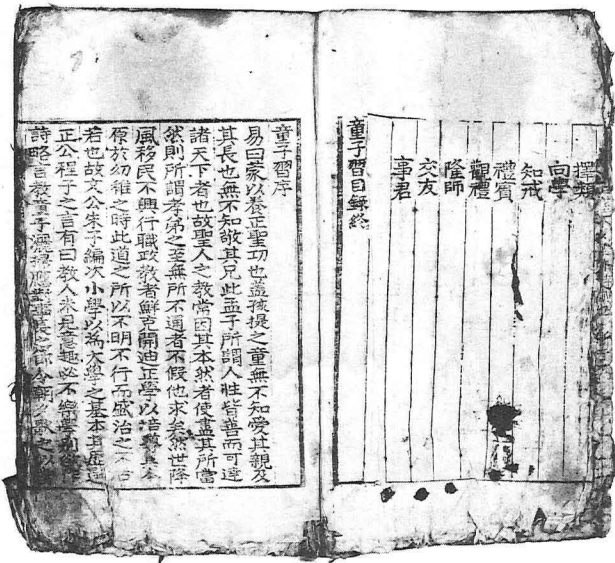 擇類
向學
知戒
禮賓
觀禮
隆師
交友
事君
童子習目録終
童子習序
易曰蒙以養正聖功也蓋孩提之童無不知愛其親及
其長也無不知敬其兄此孟子所謂人性皆善而可達
諸天下者也故聖人之教常因其本然者使盡其所當
然則所謂孝弟之至無所不通者不假他求矣然世降
風移民不興行職政教者鮮克開迪正學以培養其本
原於幼稚之時此道之所以不明不行而盛治之不古
若也故文公朱子編次小學以為大學之基本其屢述
正公程子之言有曰教人未見意趣必不樂學
詩略言教童子灑掃應對事長之節令朝夕歌之